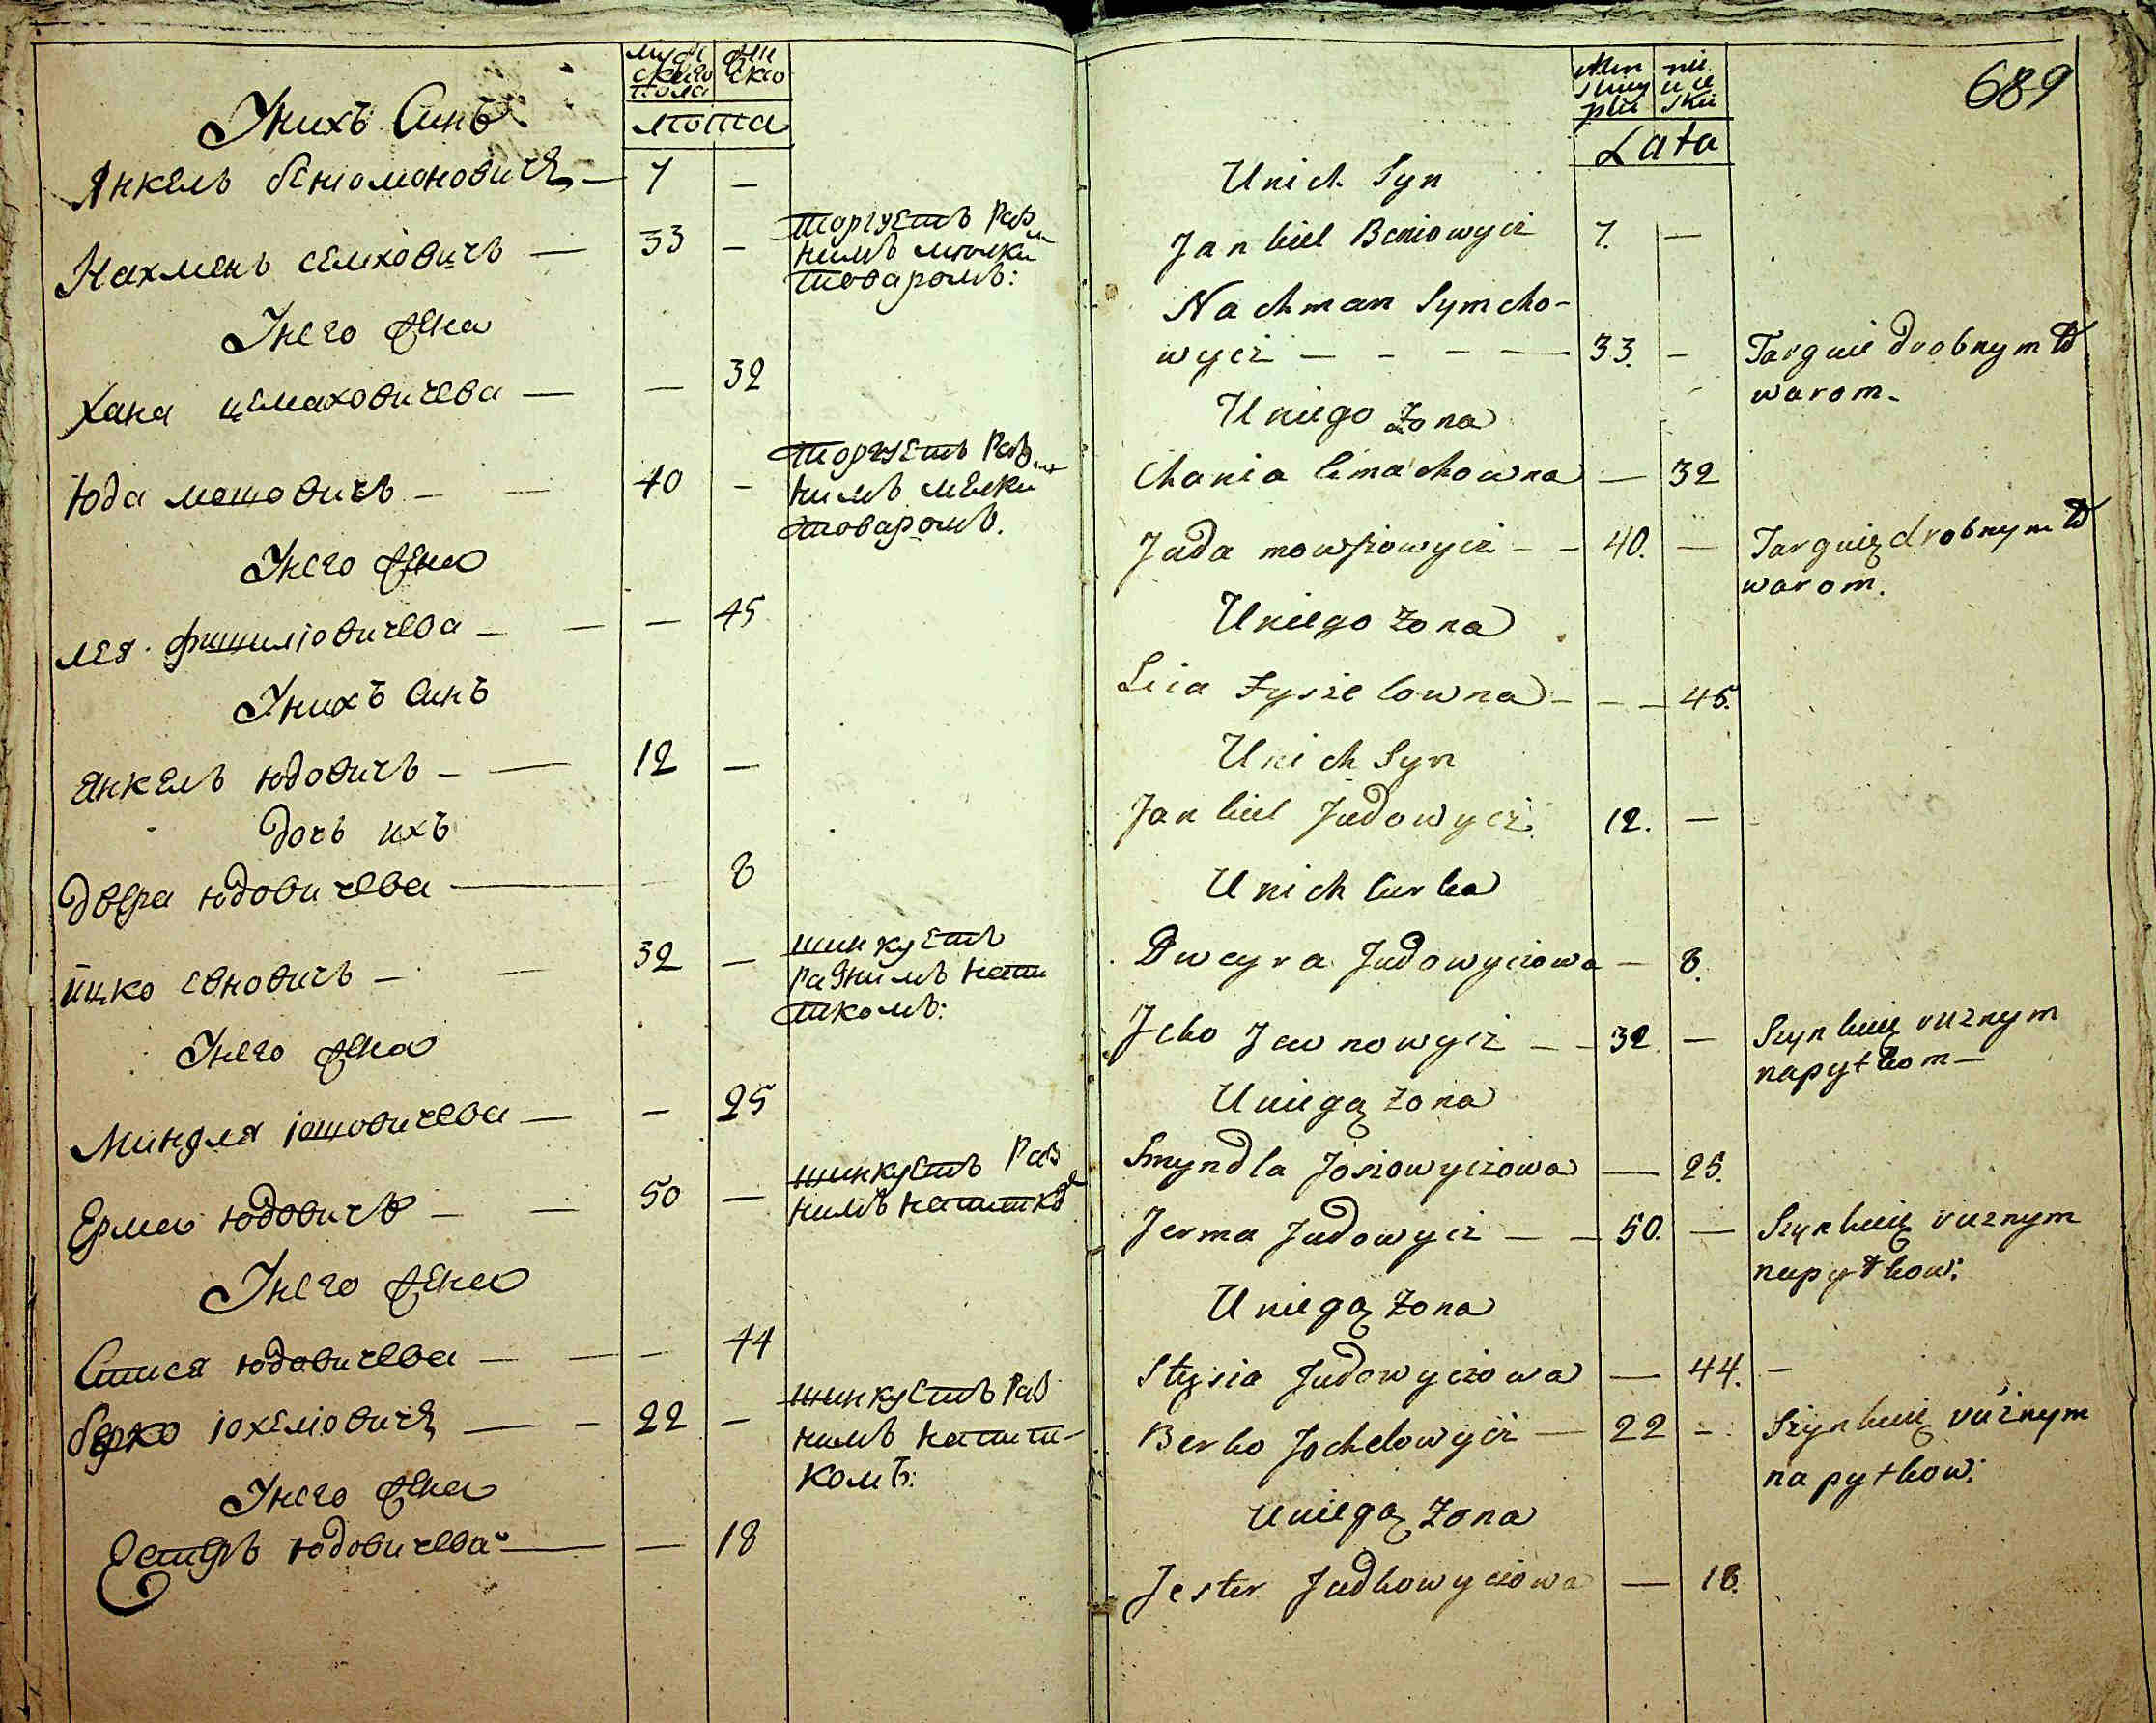 мужескаго пола
женско
лѣта
Унихъ Синъ
Янкель беніоменовичъ — 7 —
Нахмень семховичъ — 33 — торгуетъ раз
нимъ мелки
товаромъ:
Унего жена
Хана цемаховичева — — 32
Юда мошовичъ — — 40 — торгуетъ раз
нимъ мелки
товаромъ.
Унего жена
лея фишиліовичева — — — 45
Унихъ Синъ
Янкель юдовичъ — — 12 —
дочь ихъ
двера юдовичева — — 8
ицко евновичъ — — 32 — шинкуетъ
разнимъ напи
ткомъ:
Унего жена
Миндля іошовичева — — 25
Ерма юдовичъ — — 50 — шинкуетъ раз
нимъ напитко
Унего жена
Стися юдовичева — — — 44
берко іохеліовичъ — — 22 — шинкуетъ раз
нимъ напит-
комъ:
Унего жена
Естеръ юдовичева — — 18
689
Lata
Unich Syn
Jankiel Beniowycz 7. —
Nachman Symcho-
wycz — — — — 33. — Targuie drobnym to
warom.
Uniego żona
Chania Cmachowna — 32
Juda mowszowycz — — 40. — Targuię drobnym to
warom.
Uniego żona
Leia Fyszelowna — — — 45.
Unich Syn
Jankiel Judowycz 12. —
Unich Curka
Dweyra Judowyczowa — 8.
Jcko Jewnowycz — — 32. — Szynkuię rużnym
napytkom —
Uniegą żona
Smyndla Josiowyczowa — 25.
Jerma Judowycz — — 50. — Szynkuię rużnym
napytkow:
Uniegą żona
Stysia Judowyczowa — 44. —
Berko Jochelowycz — 22 — Szynkuię rużnym
napytkow:
Uniegą żona
Jester Judkowyczowa — 18.